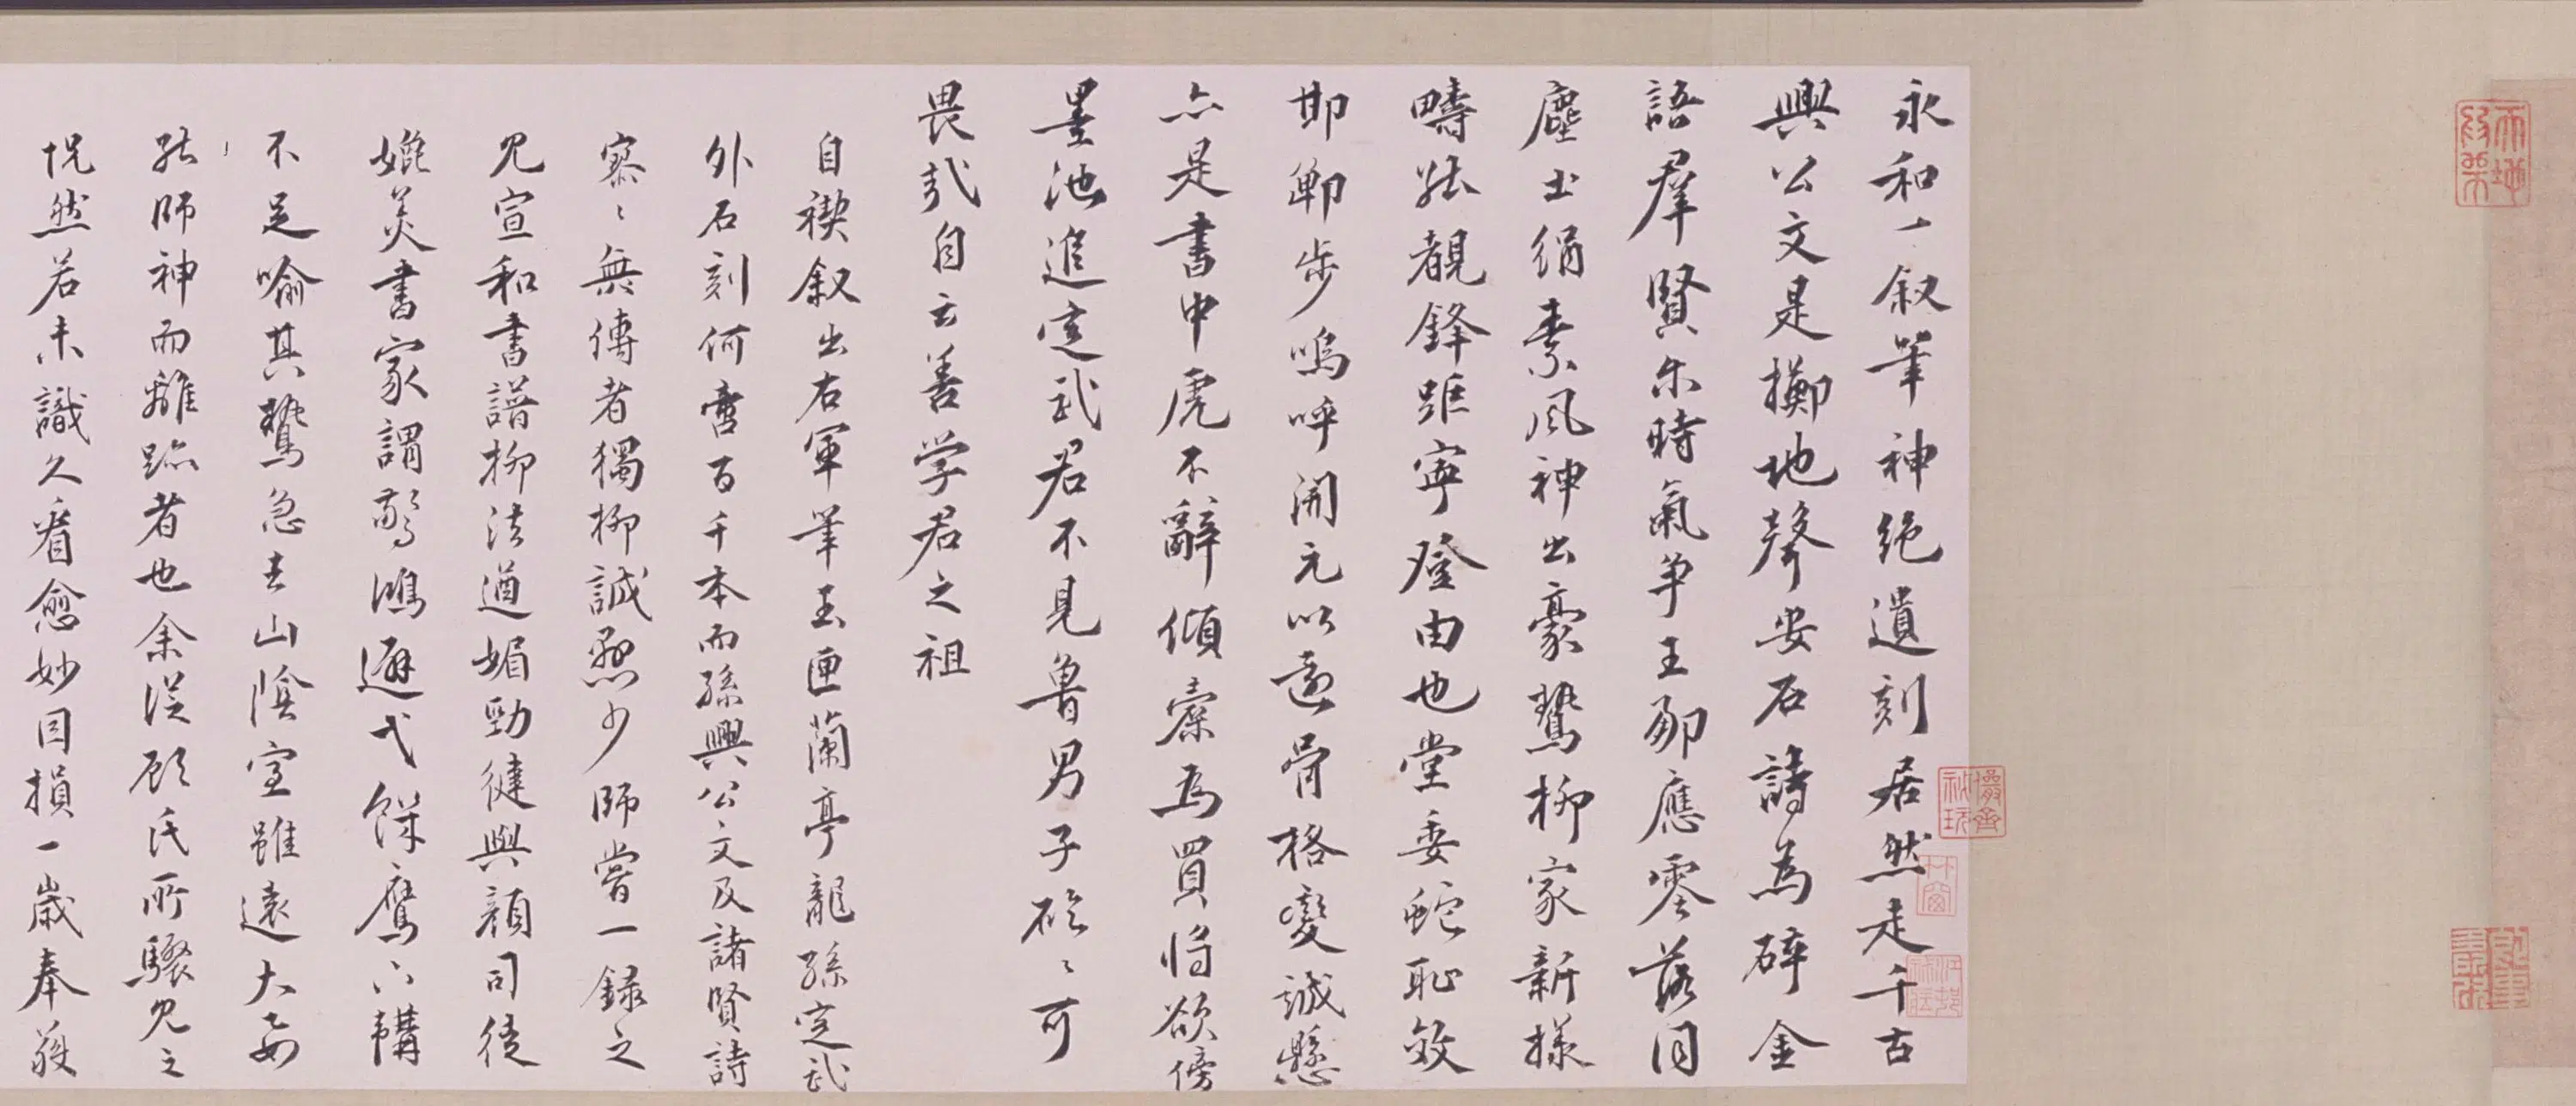 永和一叙筆神絶遺刻居然走千古
興公文是擲地聲安石詩為碎金
語羣賢尔時氣争王郎應零落同
塵土絹素風神出豪鷙柳家新樣
疇能覩鋒距寧登由也堂委蛇恥效
邯鄲步嗚呼開元以還骨格變誠懸
亦是書中虎不辭傾橐為買将欲傍
墨池進定武君不見魯男子硁〻可
畏哉自云善学君之祖
自禊叙出右軍筆玉匣蘭亭龍孫定武
外石刻何啻百千本而孫興公文及諸賢詩
寥〻無傳者獨柳誠懸少師嘗一録之
見宣和書譜柳法遒媚勁健與顔司徒
媲美書家謂驚鴻避弋饑鷹下韝
不足喻其鷙急去山陰室雖遠大要
能師神而離跡者也余従顧氏所驟見之
怳然若未識久看愈妙因損一歲奉獲